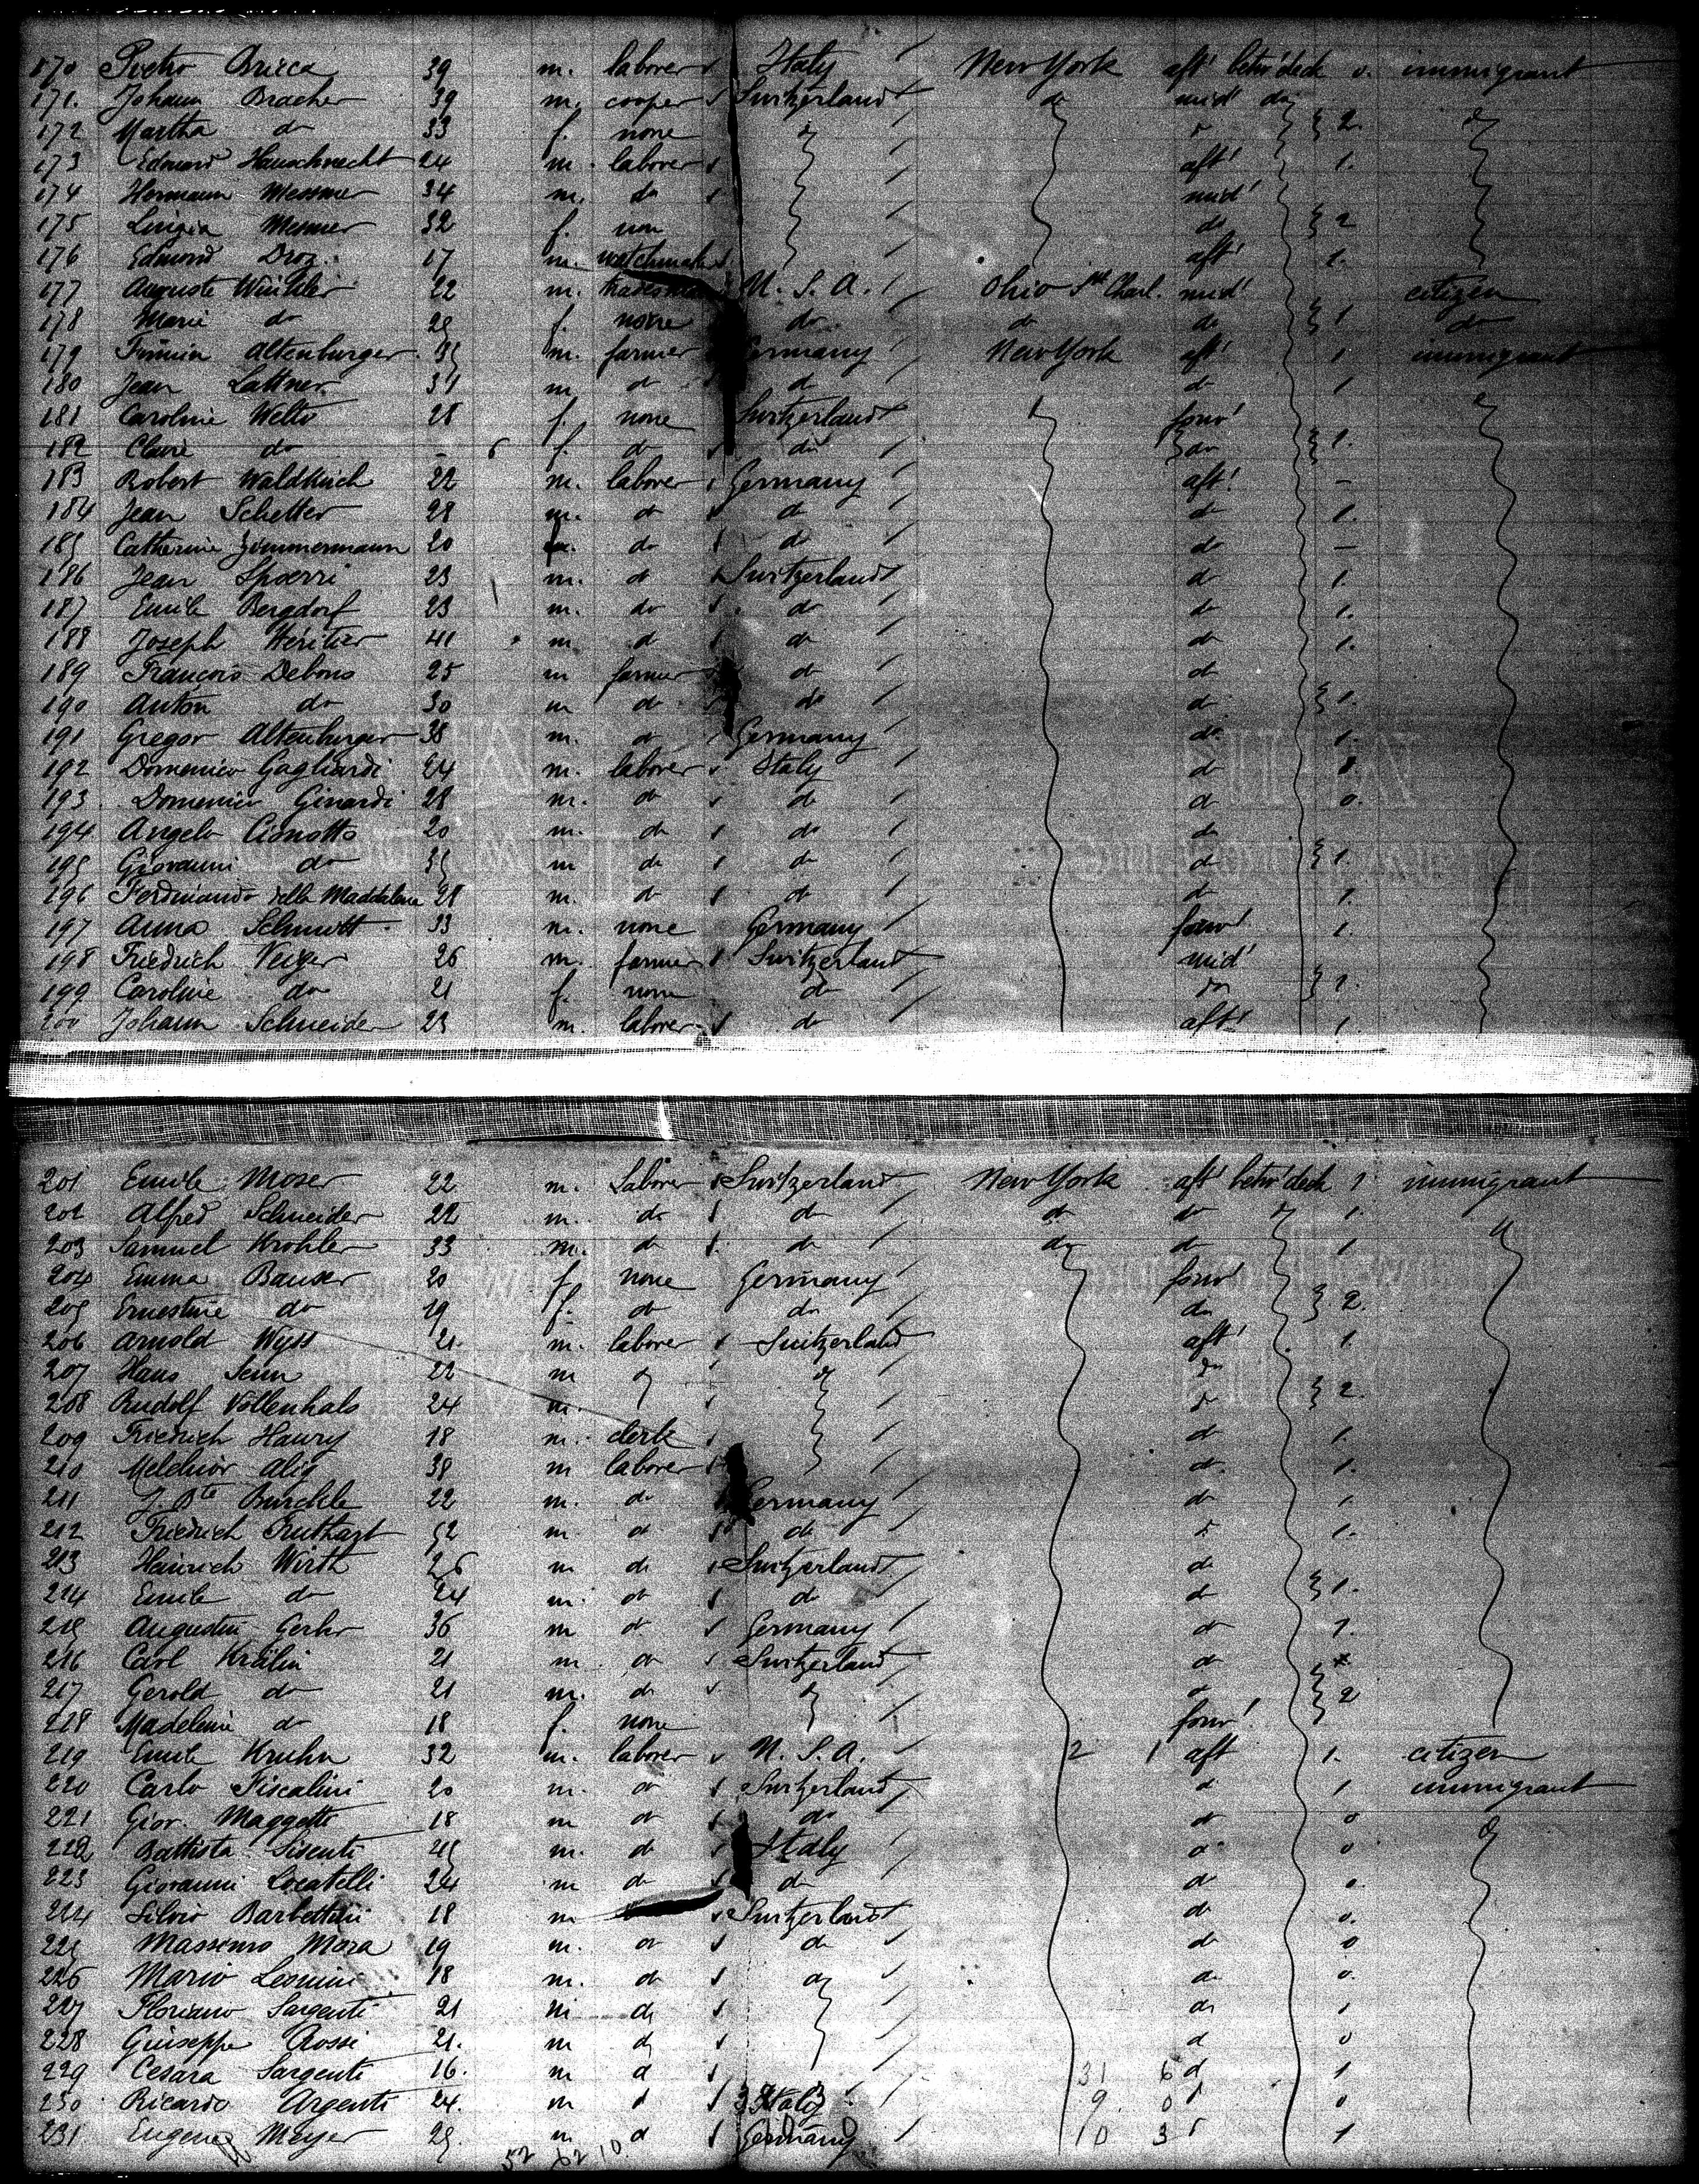 170 Pietro Bricca 39 m. laborer Italy New York aft' betw' deck 0. immigrant
171. Johann Bracher 39 m. cooper Switzerland do mid' do
172 Martha do 33 f. none 2.
173 Edouard Hauschnecht 24 m. laborer aft' 1.
174 Hermann Messmer 34 m. do mid'
175 Mesmer 32 f. non do 2
176 Edmond Droz. 17 m. watchmaker aft' 1.
177 Auguste Winkler 22 m. U. S. A. Ohio St Charl. mid' citizen
178 Marie do 25 f. none do do do 1 do
179 Altenburger 35 m. farmer Germany New York aft' 1. immigrant
180 Jean Lattner 31 m do do do 1
181 Caroline Welte 28 f. none Switzerland forw'
182 Claire do - 6 f. do do do 1.
183 Robert Waldkirch 22 m. laborer Germany aft' -
184 Jean Schetter 28 m. do do do 1.
185 Catherine Zimmermann 20 f. do do do -
186 Jean Spoerri 23 m. do Switzerland do 1
187 Emile Bergdorf 23 m. do do do 1.
188 Joseph Héritier 41 m do do do 1.
189 François Debons 25 m farmer do do
190 Anton do 30 m do do do 1.
191 Gregor Altenburger 38 m. do Germany do 1.
192 Domenico Gagliardi 24 m. laborer Italy do 0.
193. Domenico Ginardi 28 m. do do do 0.
194 Angelo Cionotto 20 m. do do do
195 Giovanni do 35 m do do do 1.
196 Ferdinando della Maddalena 28 m. do do do 1.
197 Anna Schmitt 33 m. none Germany forw' 1.
198 Friedrich Neiger 26 m. farmer Switzerland mid'
199 Caroline do 21 f. none do do 2.
200 Johann Schneider 23 m. laborer do aft' 1.
201 Emile Moser 22 m. Laborer Switzerland New York aft' betw' deck 1 immigrant
202 Alfred Schneider 22 m. do do do do do 1.
203 Samuel Krohler 33 m. do do do do 1
204 Emma Bauser 20 f. none Germany forw'
205 Ernestine do 19 f. do do do 2.
206 Arnold Wyss 21. m. laborer Switzerland aft' 1.
207 Hans Senn 22 m do
208 Rudolf Vollenhals 24 m. do 2.
209 Friedrich Haury 18 m. clerk do 1.
210 Melchior Alig 38 m laborer do 1.
211 J. Bte Burckle 22 m. do Germany do 1
212 Friedrich 52 m. do do do 1.
213 Heinrich Wirth 26 m do Switzerland do
214 Emile do 24 m. do do do 1.
215 Augustin Gerhr 36 m do Germany do 1.
216 Carl Krälin 21 m. do Switzerland do
217 Gerold do 21 m. do do 2
218 Madeleine do 18 f. none forw'
219 Emile Kruhn 32 m. laborer U. S. A. 2 1 aft 1. citizen
220 Carlo Fiscalini 20 m. do Switzerland do 1 immigrant
221 Giov. Maggetti 18 m do do do 0
222 Battista Sisenti 45 m. do Italy do 0
223 Giovanni Locatelli 24 m do do do 0.
224 Silvio Barbettini 18 m Switzerland do 0.
225 Massimo Mora 19 m. do do do 0
226 Mario Lesnini 18 m. do do do 0.
227 Floriano Sargenti 21 m do do 1
228 Guiseppe Rossi 21. m do d 0
229 Cesara Sargenti 16. m d 31 6 d 1
230 Ricardo Argenti 24. m d Italy 9 0 0
231 Eugene Meyer 25. m d Germany 10 3 1
52 62 10